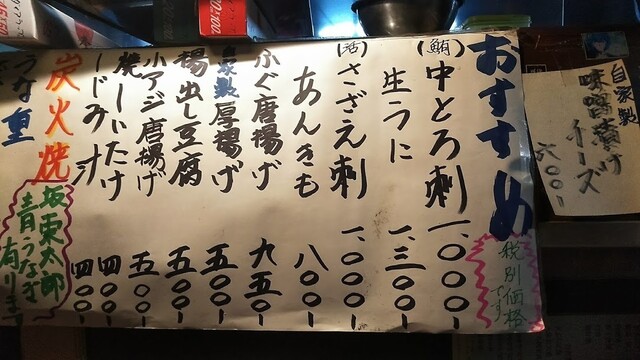 おすすめ
税別価格です
(鮪)中とろ刺 一、〇〇〇ー
生うに 一、三〇〇ー
(活)さざえ刺 一、〇〇〇ー
あんきも 八〇〇ー
ふぐ唐揚げ 九五〇ー
自家製厚揚げ 五〇〇ー
揚出し豆腐 五〇〇ー
小アジ唐揚げ 五〇〇ー
焼しいたけ 四〇〇ー
しじみ汁 四〇〇ー
炭火焼
うな重
坂東太郎
青うなぎ
有ります
自家製
味噌漬け
チーズ
六〇〇ー